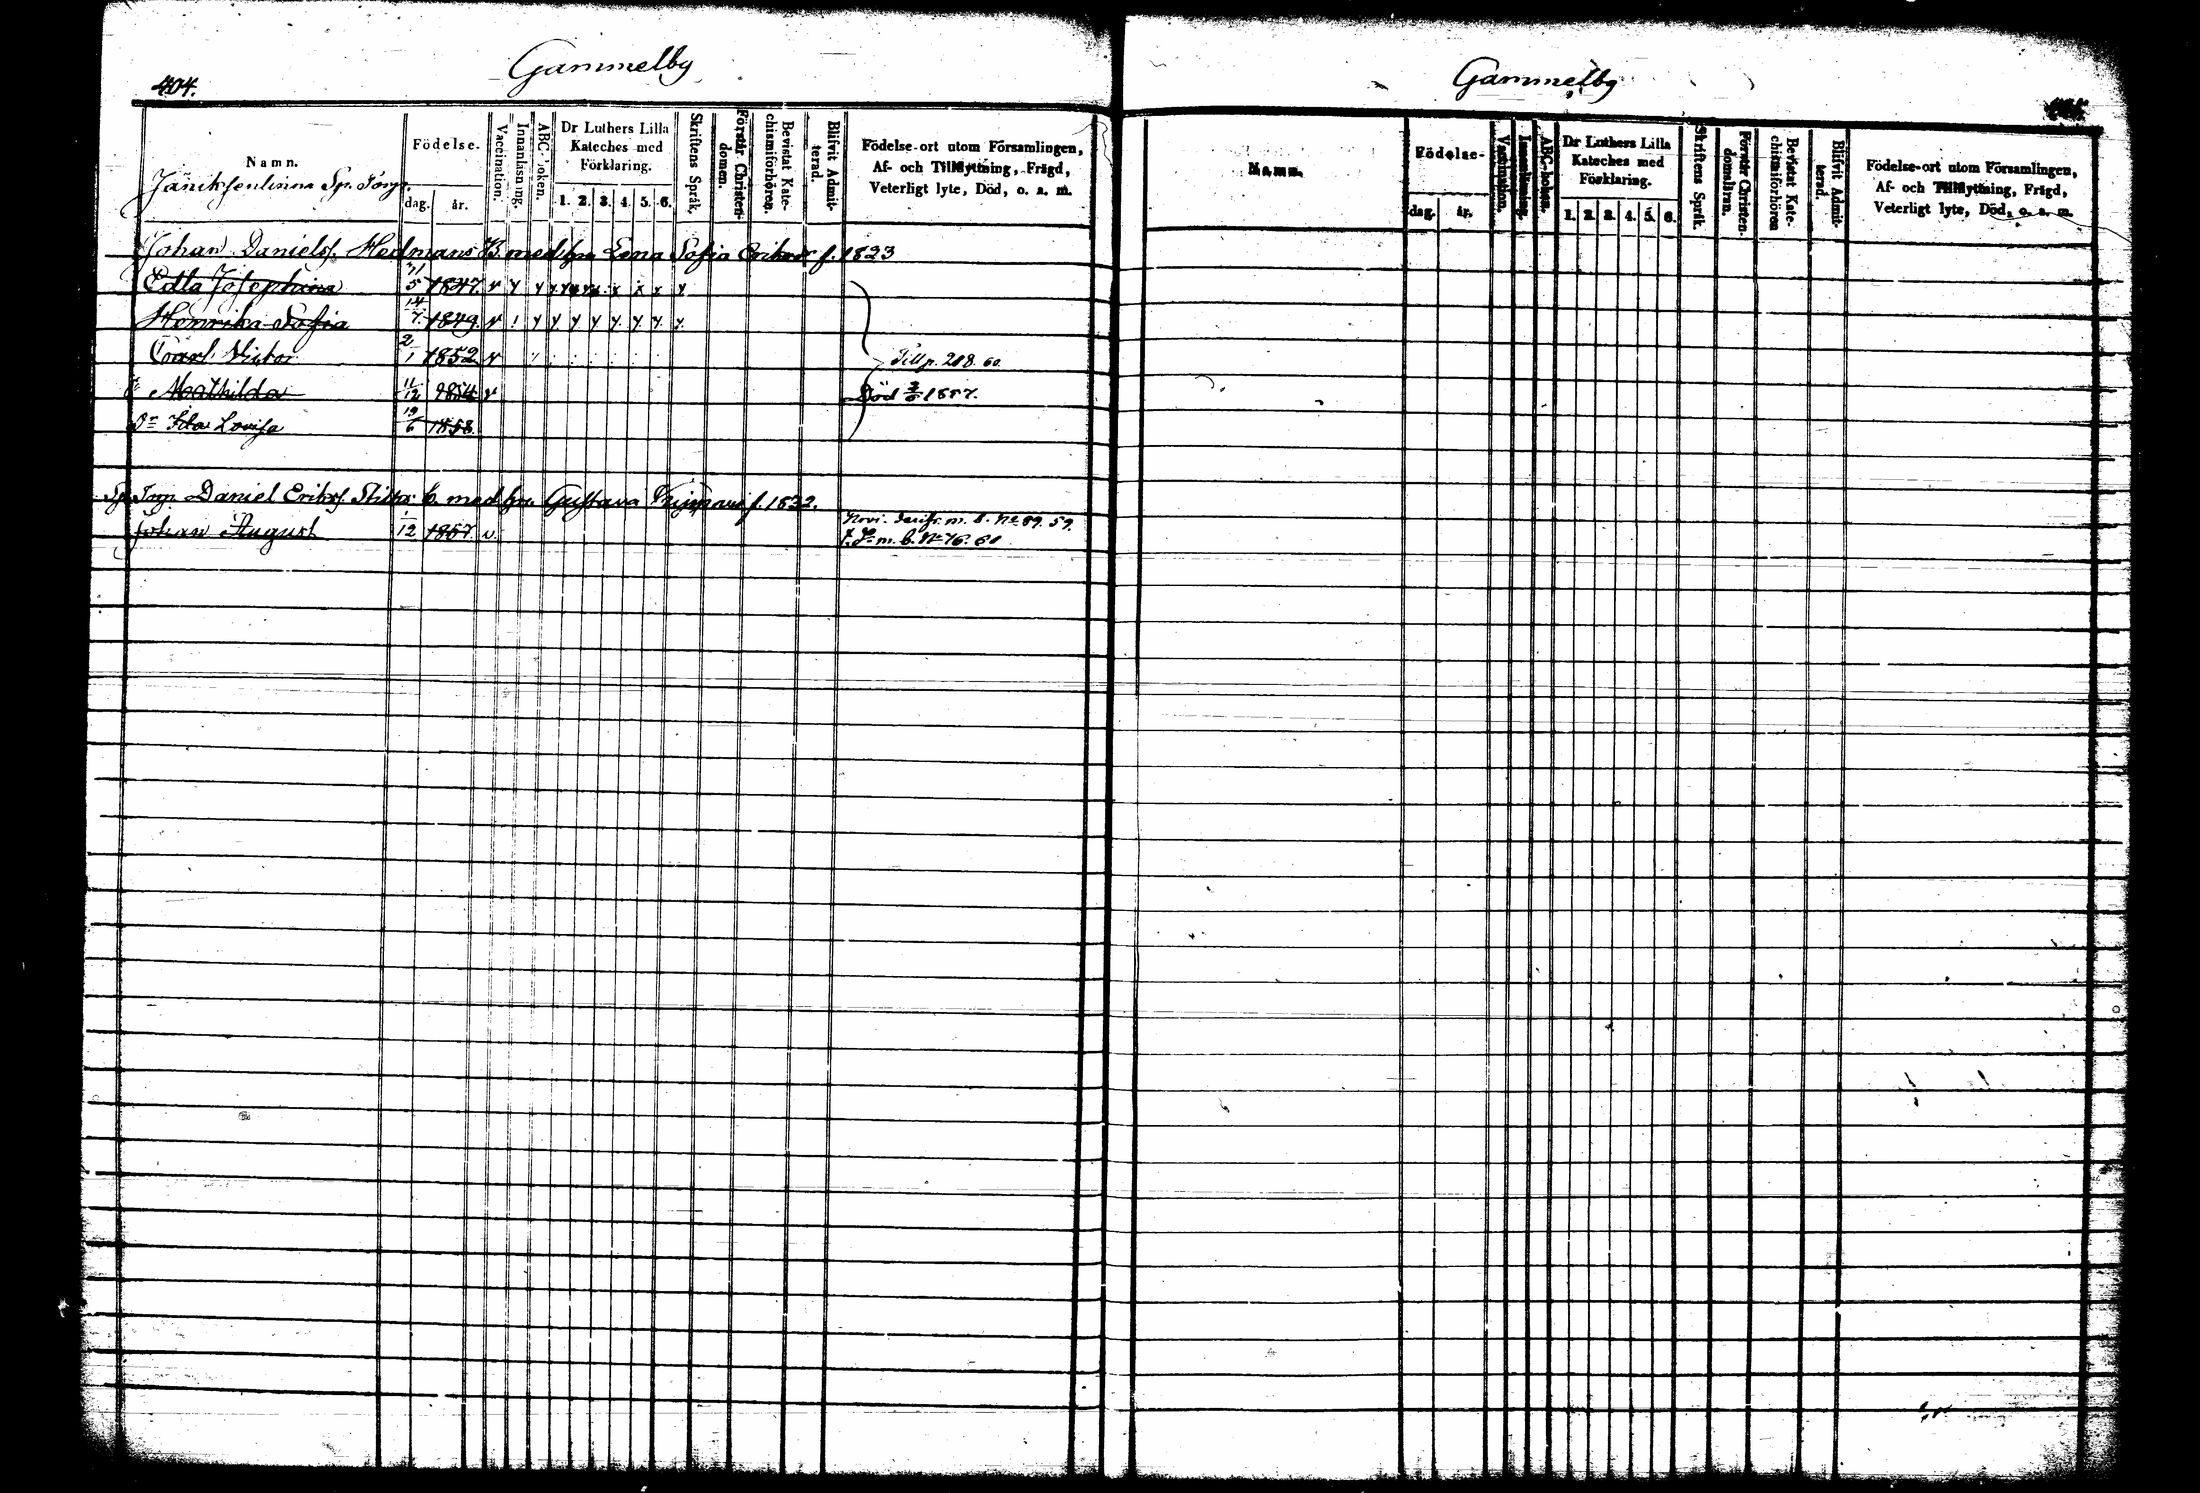 404.
Gammelby
Namn.
Födelse.
dag. år.
Vaccination.
Innanläsning.
ABC-boken.
Dr Luthers Lilla
Kateches med
Förklaring.
1. 2. 3. 4. 5. 6.
Skriftens Språk.
Förstår Christen-
domen.
Bevistat Kate-
chismiförhören.
Blifvit Admit-
terad.
Födelse-ort utom Församlingen,
Af- och Tillflyttning, Frägd,
Veterligt lyte, Död, o. a. m.
Johan Danielsf. Hedmans B. med hu Lena Sofia f. 1823
Edla Josephina 21/5 1847. v
Henrika Sofia 14/7. 1849. v
Carl Victor 2/1 1852 v
Till p. 208. 60.
Mathilda 11/12 1854 v
Död 1857.
Dr Ida Lovisa 19/6 1858.
Daniel Eriksf. med hu Gustava f. 1832.
Johan August 1/12 1857. v.
m. b. No 89. 59.
m. b. No 76. 60
Gammelby
Namn.
Födelse-
dag. år.
Vaccination.
Innanläsning.
ABC-boken.
Dr Luthers Lilla
Kateches med
Förklaring.
1. 2. 3. 4. 5. 6.
Skriftens Språk.
Förstår Christen-
domsläran.
Bevistat Kate-
chismiförhören
Blifvit Admit-
terad.
Födelse-ort utom Församlingen,
Af- och Tillflyttning, Frägd,
Veterligt lyte, Död, o. a. m.